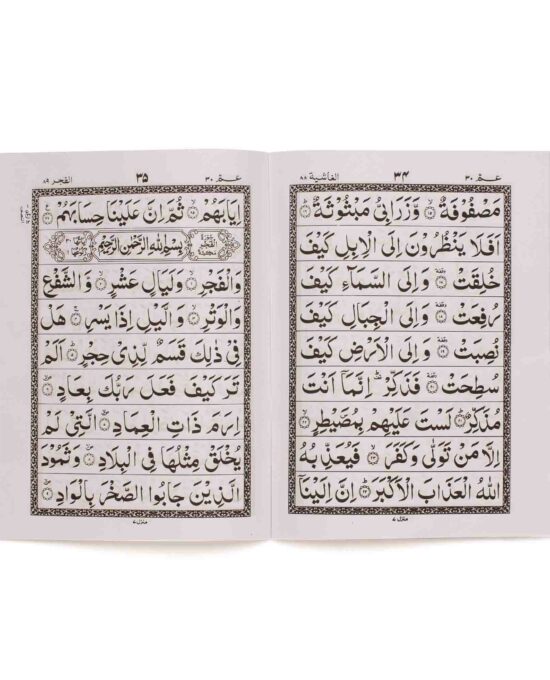 عـمّ ٣٠
٣٤
الغاشية ٨٨
مَصْفُوْفَةٌ ۙ﴿١٥﴾ وَّزَرَابِيُّ مَبْثُوْثَةٌ ؕ﴿١٦﴾
اَفَلَا يَنْظُرُوْنَ اِلَى الْاِبِلِ كَيْفَ
خُلِقَتْ ﴿١٧﴾ وَاِلَى السَّمَآءِ كَيْفَ
رُفِعَتْ ﴿١٨﴾ وَاِلَى الْجِبَالِ كَيْفَ
نُصِبَتْ ﴿١٩﴾ وَاِلَى الْاَرْضِ كَيْفَ
سُطِحَتْ ﴿٢٠﴾ فَذَكِّرْ ۫ اِنَّمَاۤ اَنْتَ
مُذَكِّرٌ ؕ﴿٢١﴾ لَسْتَ عَلَيْهِمْ بِمُصَيْطِرٍ ۙ﴿٢٢﴾
اِلَّا مَنْ تَوَلّٰى وَكَفَرَ ۙ﴿٢٣﴾ فَيُعَذِّبُهُ
اللّٰهُ الْعَذَابَ الْاَكْبَرَ ؕ﴿٢٤﴾ اِنَّ اِلَيْنَاۤ
منزل ٧
عـمّ ٣٠
٣٥
الفجر ٨٩
اِيَابَهُمْ ۙ﴿٢٥﴾ ثُمَّ اِنَّ عَلَيْنَا حِسَابَهُمْ ﴿٢٦﴾
سُوْرَةُ الْفَجْرِ مَكِّيَّةٌ
بِسْمِ اللّٰهِ الرَّحْمٰنِ الرَّحِيْمِ
وَالْفَجْرِ ۙ﴿١﴾ وَلَيَالٍ عَشْرٍ ۙ﴿٢﴾ وَّالشَّفْعِ
وَالْوَتْرِ ۙ﴿٣﴾ وَالَّيْلِ اِذَا يَسْرِ ۚ﴿٤﴾ هَلْ
فِيْ ذٰلِكَ قَسَمٌ لِّذِيْ حِجْرٍ ؕ﴿٥﴾ اَلَمْ
تَرَ كَيْفَ فَعَلَ رَبُّكَ بِعَادٍ ۙ﴿٦﴾
اِرَمَ ذَاتِ الْعِمَادِ ۙ﴿٧﴾ الَّتِيْ لَمْ
يُخْلَقْ مِثْلُهَا فِي الْبِلَادِ ۙ﴿٨﴾ وَثَمُوْدَ
الَّذِيْنَ جَابُوا الصَّخْرَ بِالْوَادِ ۙ﴿٩﴾
منزل ٧